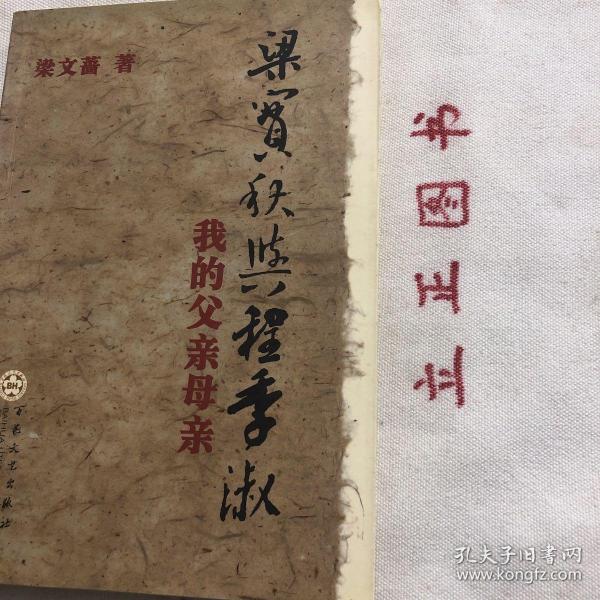 梁文蔷 著
梁實秋與程季淑
我的父亲母亲
BH
百花文艺出版社
立正图书
孔夫子旧书网
www.kongfz.com